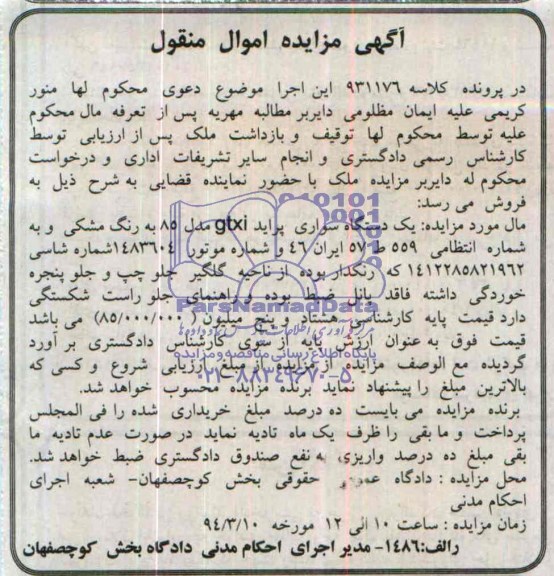 آگهی مزایده اموال منقول
در پرونده کلاسه ۹۳۱۱۷۶ این اجرا موضوع دعوی محکوم لها منور
کریمی علیه ایمان مظلومی دایربر مطالبه مهریه پس از تعرفه مال محکوم
علیه توسط محکوم لها توقیف و بازداشت ملک پس از ارزیابی توسط
کارشناس رسمی دادگستری و انجام سایر تشریفات اداری و درخواست
محکوم له دایربر مزایده ملک با حضور نماینده قضایی به شرح ذیل به
فروش می رسد:
مال مورد مزایده: یک دستگاه سواری پراید gtxi مدل ۸۵ به رنگ مشکی و به
شماره انتظامی ۵۵۹ ط ۵۷ ایران ۴۶ و شماره موتور ۱۴۸۳۶۰۴ شماره شاسی
۱۴۱۲۲۸۵۸۲۱۹۶۲ که رنگدار بوده از ناحیه گلگیر جلو چپ و جلو پنجره
خوردگی داشته فاقد پانل ضبط بوده و راهنمای جلو راست شکستگی
دارد قیمت پایه کارشناسی هشتاد و پنج میلیون (۸۵/۰۰۰/۰۰۰) می باشد
قیمت فوق به عنوان ارزش پایه از سوی کارشناس دادگستری بر آورد
گردیده مع الوصف مزایده از مبلغ ارزیابی شروع و کسی که
بالاترین مبلغ را پیشنهاد نماید برنده مزایده محسوب خواهد شد.
برنده مزایده می بایست ده درصد مبلغ خریداری شده را فی المجلس
پرداخت و ما بقی را ظرف یک ماه تادیه نماید در صورت عدم تادیه ما
بقی مبلغ ده درصد واریزی به نفع صندوق دادگستری ضبط خواهد شد.
محل مزایده : دادگاه عمومی حقوقی بخش کوچصفهان- شعبه اجرای
احکام مدنی
زمان مزایده : ساعت ۱۰ الی ۱۲ مورخه ۹۴/۳/۱۰
رالف:۱۴۸۶- مدیر اجرای احکام مدنی دادگاه بخش کوچصفهان
ParsNamadData
پایگاه اطلاع رسانی مناقصه و مزایده
۰۲۱-۸۸۳۴۹۶۷۰-۵